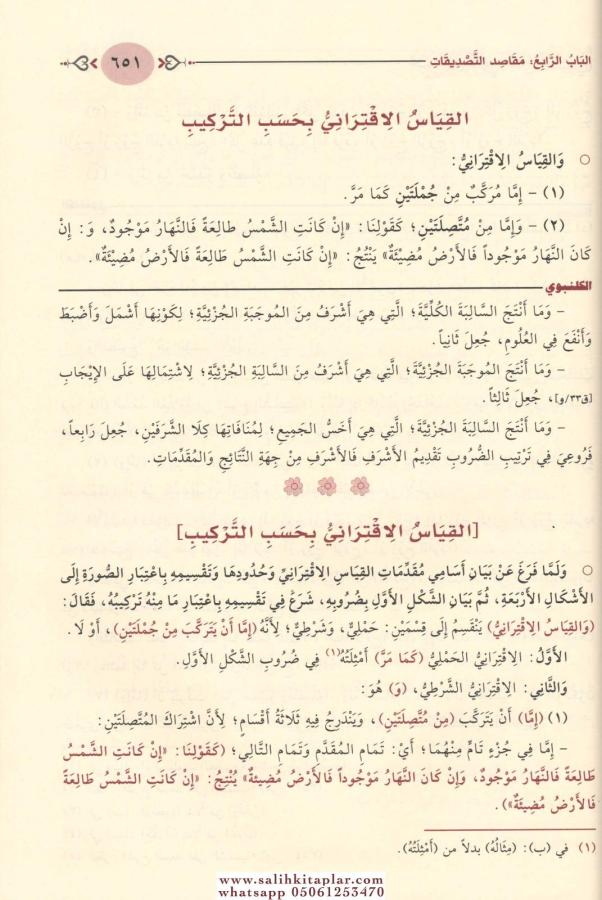 البَابُ الرَّابِعُ: مَقَاصِد التَّصْدِيقَاتِ
٦٥١
القِيَاسُ الِاقْتِرَانِيُّ بِحَسَبِ التَّرْكِيبِ
○ وَالقِيَاسُ الِاقْتِرَانِيُّ:
(١) - إِمَّا مُرَكَّبٌ مِنْ جُمْلَتَيْنِ كَمَا مَرَّ.
(٢) - وَإِمَّا مِنْ مُتَّصِلَتَيْنِ؛ كَقَوْلِنَا: «إِنْ كَانَتِ الشَّمْسُ طَالِعَةً فَالنَّهَارُ مَوْجُودٌ، وَ: إِنْ
كَانَ النَّهَارُ مَوْجُوداً فَالأَرْضُ مُضِيْئَةٌ» يَنْتُجُ: «إِنْ كَانَتِ الشَّمْسُ طَالِعَةً فَالأَرْضُ مُضِيْئَةٌ».
الكلنبوي
- وَمَا أَنْتَجَ السَّالِبَةَ الكُلِّيَّةَ؛ الَّتِي هِيَ أَشْرَفُ مِنَ المُوجَبَةِ الجُزْئِيَّةِ؛ لِكَوْنِهَا أَشْمَلَ وَأَضْبَطَ
وَأَنْفَعَ فِي العُلُومِ، جُعِلَ ثَانِياً.
- وَمَا أَنْتَجَ المُوجَبَةَ الجُزْئِيَّةَ؛ الَّتِي هِيَ أَشْرَفُ مِنَ السَّالِبَةِ الجُزْئِيَّةِ؛ لِاشْتِمَالِهَا عَلَى الإِيْجَابِ
[ق٣٣/و]، جُعِلَ ثَالِثاً.
- وَمَا أَنْتَجَ السَّالِبَةَ الجُزْئِيَّةَ؛ الَّتِي هِيَ أَخَسُّ الجَمِيعِ؛ لِمُنَافَاتِهَا كِلَا الشَّرَفَيْنِ، جُعِلَ رَابِعاً،
فَرُوعِيَ فِي تَرْتِيبِ الضُّرُوبِ تَقْدِيمُ الأَشْرَفِ فَالأَشْرَفِ مِنْ جِهَةِ النَّتَائِجِ وَالمُقَدِّمَاتِ.
[القِيَاسُ الِاقْتِرَانِيُّ بِحَسَبِ التَّرْكِيبِ]
○ وَلَمَّا فَرَغَ عَنْ بَيَانِ أَسَامِي مُقَدِّمَاتِ القِيَاسِ الِاقْتِرَانِيِّ وَحُدُودِهَا وَتَقْسِيمِهِ بِاعْتِبَارِ الصُّورَةِ إِلَى
الأَشْكَالِ الأَرْبَعَةِ، ثُمَّ بَيَانِ الشَّكْلِ الأَوَّلِ بِضُرُوبِهِ، شَرَعَ فِي تَقْسِيمِهِ بِاعْتِبَارِ مَا مِنْهُ تَرْكِيبُهُ، فَقَالَ:
(وَالقِيَاسُ الِاقْتِرَانِيُّ) يَنْقَسِمُ إِلَى قِسْمَيْنِ: حَمْلِيٍّ، وَشَرْطِيٍّ؛ لِأَنَّهُ (إِمَّا أَنْ يَتَرَكَّبَ مِنْ جُمْلَتَيْنِ)، أَوْ لَا.
الأَوَّلُ: الِاقْتِرَانِيُّ الحَمْلِيُّ (كَمَا مَرَّ) أَمْثِلَتُهُ(١) فِي ضُرُوبِ الشَّكْلِ الأَوَّلِ.
وَالثَّانِي: الِاقْتِرَانِيُّ الشَّرْطِيُّ، (وَ) هُوَ:
(١) (إِمَّا) أَنْ يَتَرَكَّبَ (مِنْ مُتَّصِلَتَيْنِ)، وَيَنْدَرِجُ فِيهِ ثَلَاثَةُ أَقْسَامٍ؛ لِأَنَّ اشْتِرَاكَ المُتَّصِلَتَيْنِ:
- إِمَّا فِي جُزْءٍ تَامٍّ مِنْهُمَا؛ أَيْ: تَمَامِ المُقَدَّمِ وَتَمَامِ التَّالِي؛ (كَقَوْلِنَا: «إِنْ كَانَتِ الشَّمْسُ
طَالِعَةً فَالنَّهَارُ مَوْجُودٌ، وَإِنْ كَانَ النَّهَارُ مَوْجُوداً فَالأَرْضُ مُضِيئَةٌ» يُنْتِجُ: «إِنْ كَانَتِ الشَّمْسُ طَالِعَةً
فَالأَرْضُ مُضِيْئَةٌ»).
(١) في (ب): (مِثَالُهُ) بدلاً من (أَمْثِلَتُهُ).
www.salihkitaplar.com
whatsapp 05061253470